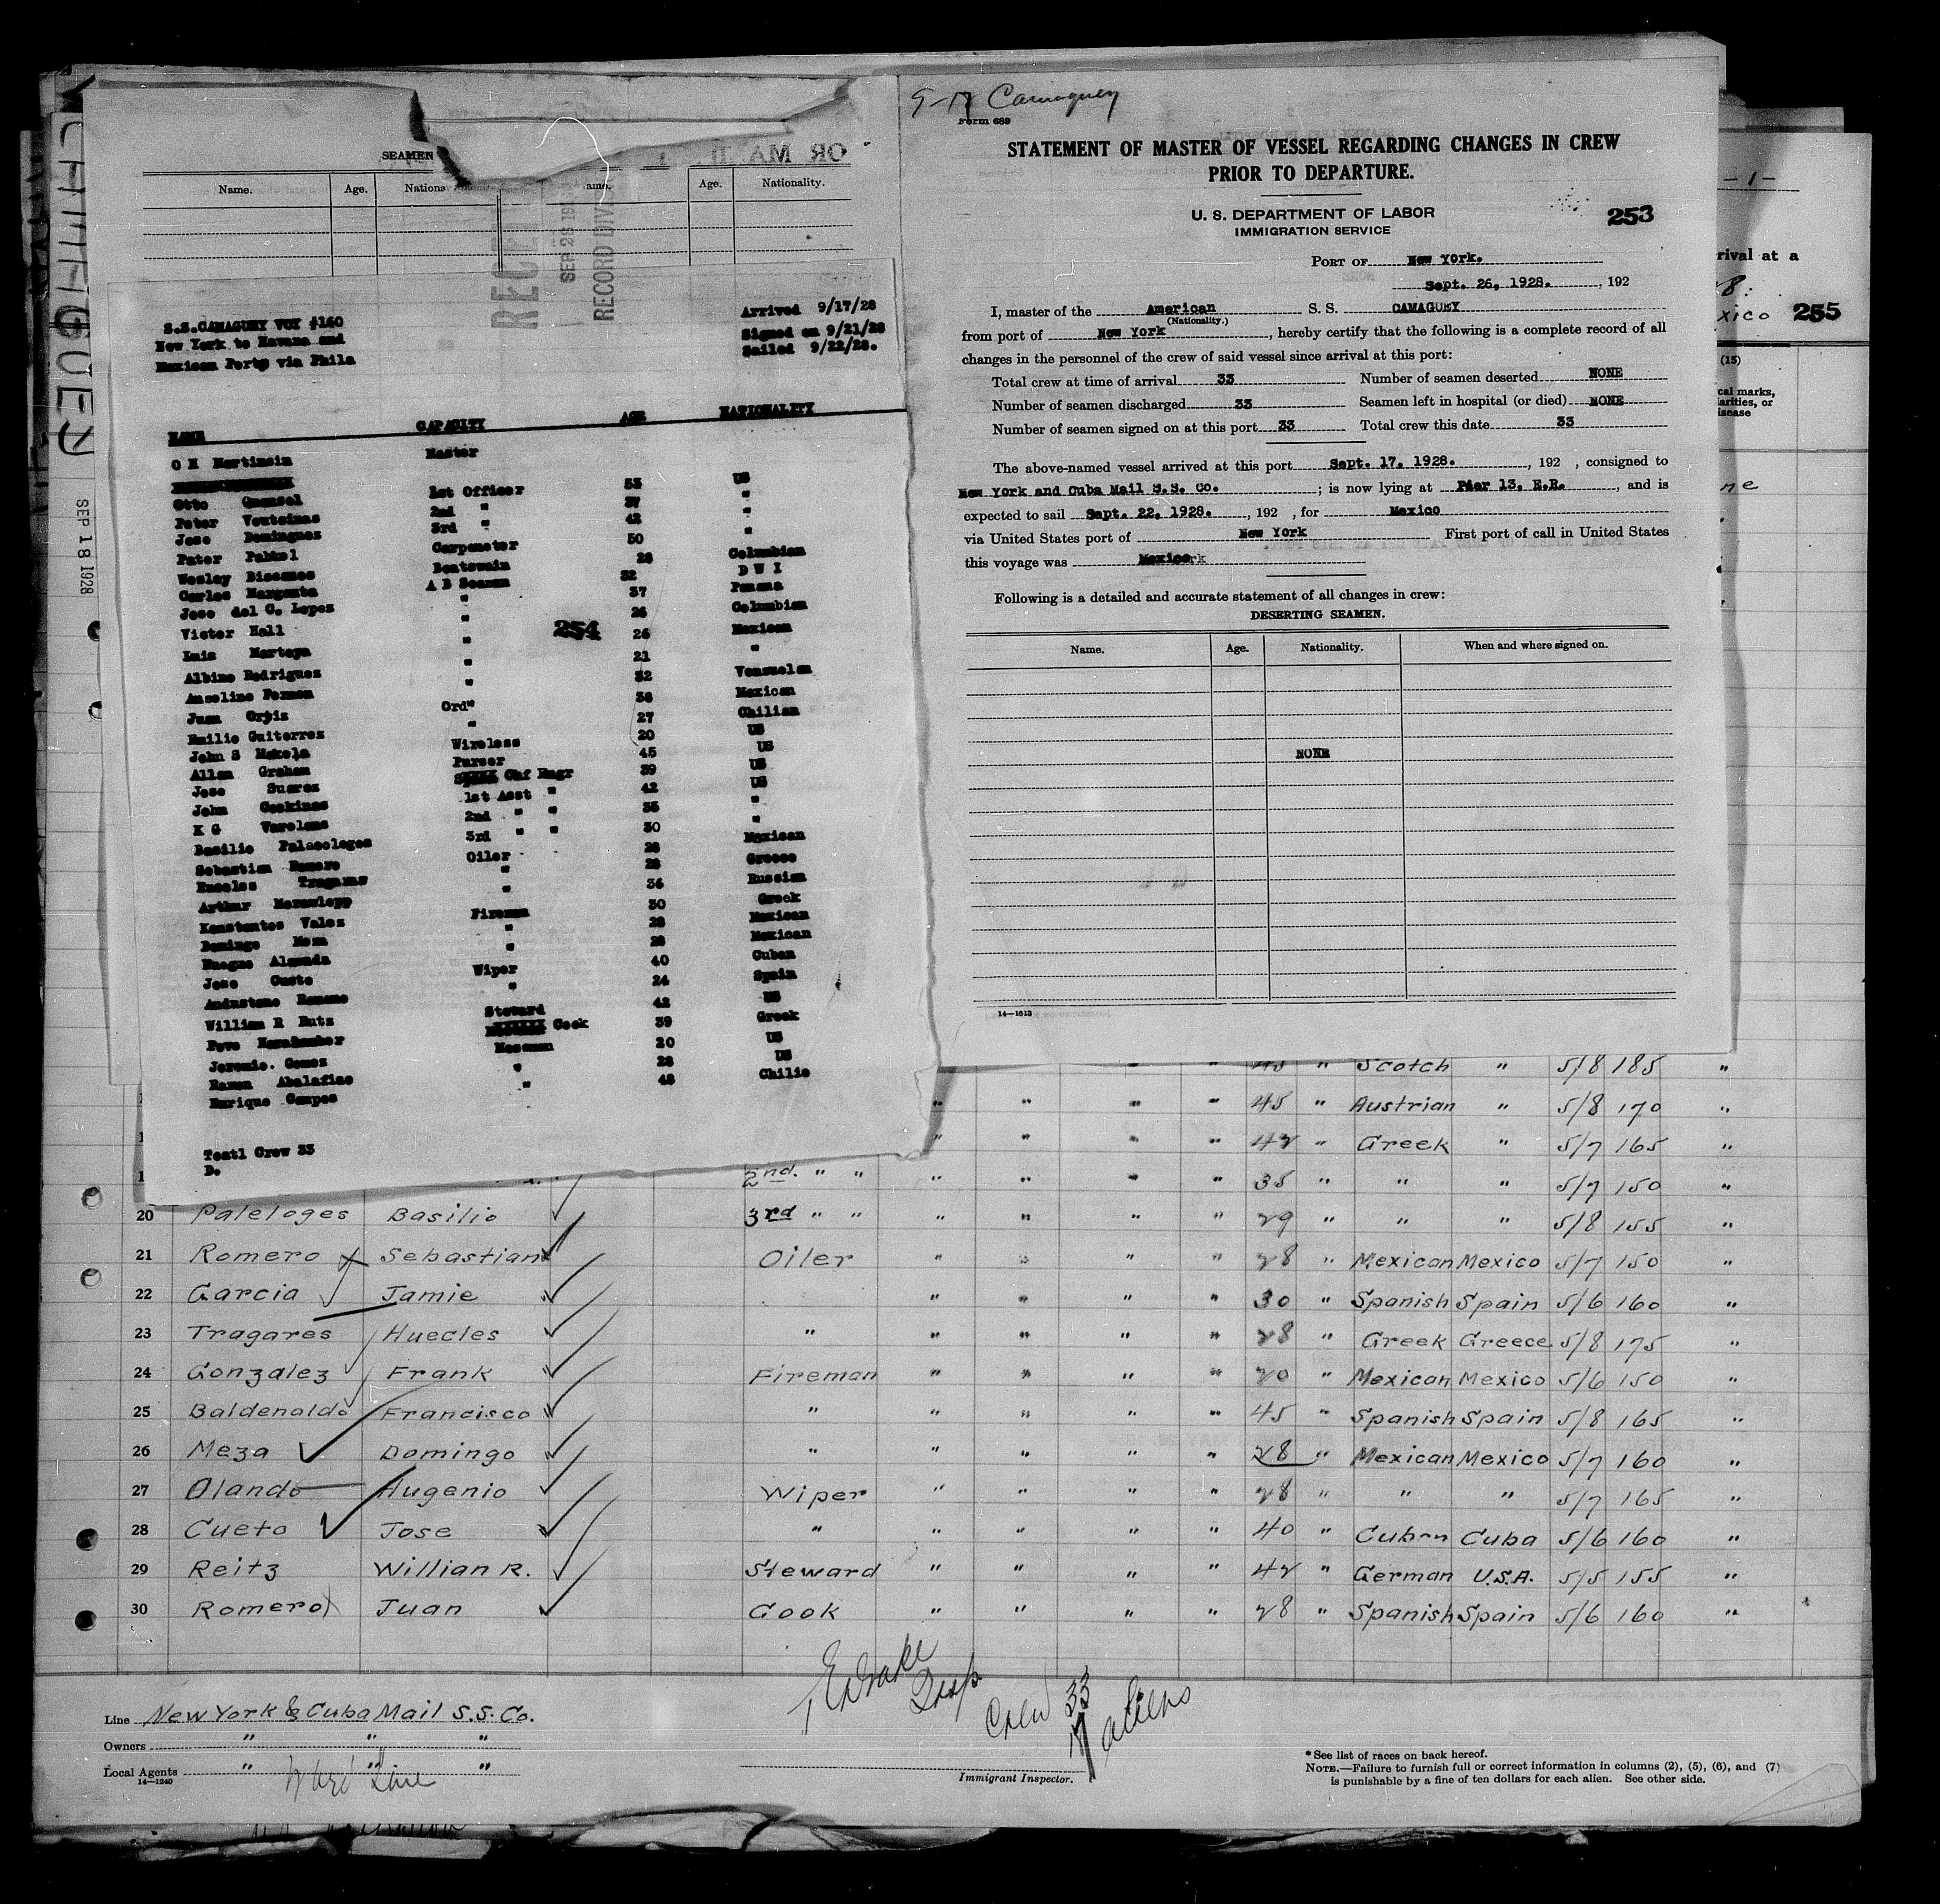 9-17 Camaguey
Form 689
STATEMENT OF MASTER OF VESSEL REGARDING CHANGES IN CREW
PRIOR TO DEPARTURE.
U. S. DEPARTMENT OF LABOR
IMMIGRATION SERVICE
253
PORT OF New York.
Sept. 26, 1928. , 192
I, master of the American S. S. CAMAGUEY
(Nationality.)
from port of New York , hereby certify that the following is a complete record of all
changes in the personnel of the crew of said vessel since arrival at this port:
Total crew at time of arrival 33 Number of seamen deserted NONE
Number of seamen discharged 33 Seamen left in hospital (or died) NONE
Number of seamen signed on at this port 33 Total crew this date 33
The above-named vessel arrived at this port Sept. 17, 1928. , 192 , consigned to
New York and Cuba Mail S.S. Co. ; is now lying at Pier 13. E.R. , and is
expected to sail Sept. 22, 1928. , 192 , for Mexico
via United States port of New York First port of call in United States
this voyage was Mexico
Following is a detailed and accurate statement of all changes in crew:
DESERTING SEAMEN.
Name. Age. Nationality. When and where signed on.
NONE
14—1613
SEAMEN
Name. Age. Nationa ame. Age. Nationality.
SEP 28 19
RECORD DIVI
S.S.CAMAGUEY VOY #160
New York to Havana and
Mexican Ports via Phila
Arrived 9/17/28
Signed on 9/21/28
Sailed 9/22/28.
NAME CAPACITY AGE NATIONALITY
O M Martinsin Master
Otto 1st Officer 53 US
Peter Ventsinas 2nd " 37 "
Jose Dominguez 3rd " 42 "
Peter Carpenster 50
Wesley Boatswain 28 Columbian
Carlos A B Seaman 32 D W I
Jose del C. Lopez " 37 Panama
Victor Hall " 26 Columbian
254
Luis " 26 Mexican
Albino Rodriguez " 21 "
Anselino " 32 Venzuelan
Juan Ortiz Ord" 38 Mexican
Emilio Guiterrez " 27 Chilian
John S Makela Wireless 20 US
Allen Graham Purser 45 US
Jose Suarez Chf Engr 39 US
John 1st Asst " 42 US
K G 2nd " " 35 "
Basilio Palaeologes 3rd " " 30 "
Sebastian Romero Oiler 28 Mexican
" 28 Greece
Arthur " 36 Russian
Konstantos Valez Fireman 30 Greek
Domingo Meza " 28 Mexican
" 28 Mexican
Jose Wiper 40 Cuban
Romano " 24 Spain
William R Steward 42 US
Cook 39 Greek
Jeremio. Gomez Mesman 20 US
Ramon " 28 US
Enrique " 48 Chilie
Teatl Crew 33
D.
SEP 18 1928
- 1 -
rival at a
xico 255
(15)
cal marks,
arities, or
isease
Scotch " 5/8 185 "
" " " " 45 " Austrian " 5/8 170 "
" " " " 42 " Greek " 5/7 165 "
2nd. " " " " " " 35 " " " 5/7 150 "
20 Paleloges Basilio 3rd " " " " " " 29 " " " 5/8 155 "
21 Romero Sebastian Oiler " " " " 28 " Mexican Mexico 5/7 150 "
22 Garcia Jamie " " " " 30 " Spanish Spain 5/6 160 "
23 Tragares Huecles " " " " " 28 " Greek Greece 5/8 175 "
24 Gonzalez Frank Fireman " " " " 20 " Mexican Mexico 5/6 150 "
25 Baldenaldo Francisco " " " " " 45 " Spanish Spain 5/8 165 "
26 Meza Domingo " " " " " 28 " Mexican Mexico 5/7 160 "
27 Olando Hugenio Wiper " " " " 28 " " " 5/7 165 "
28 Cueto Jose " " " " " 40 " Cuban Cuba 5/6 160 "
29 Reitz Willian R. Steward " " " " 42 " German U.S.A. 5/5 155 "
30 Romero Juan Cook " " " " 28 " Spanish Spain 5/6 160 "
Crew 33
17 aliens
Line New York & Cuba Mail S.S. Co.
Owners " " "
Local Agents " " "
Ward Line
14—1240
Immigrant Inspector.
* See list of races on back hereof.
NOTE.—Failure to furnish full or correct information in columns (2), (5), (6), and (7)
is punishable by a fine of ten dollars for each alien. See other side.